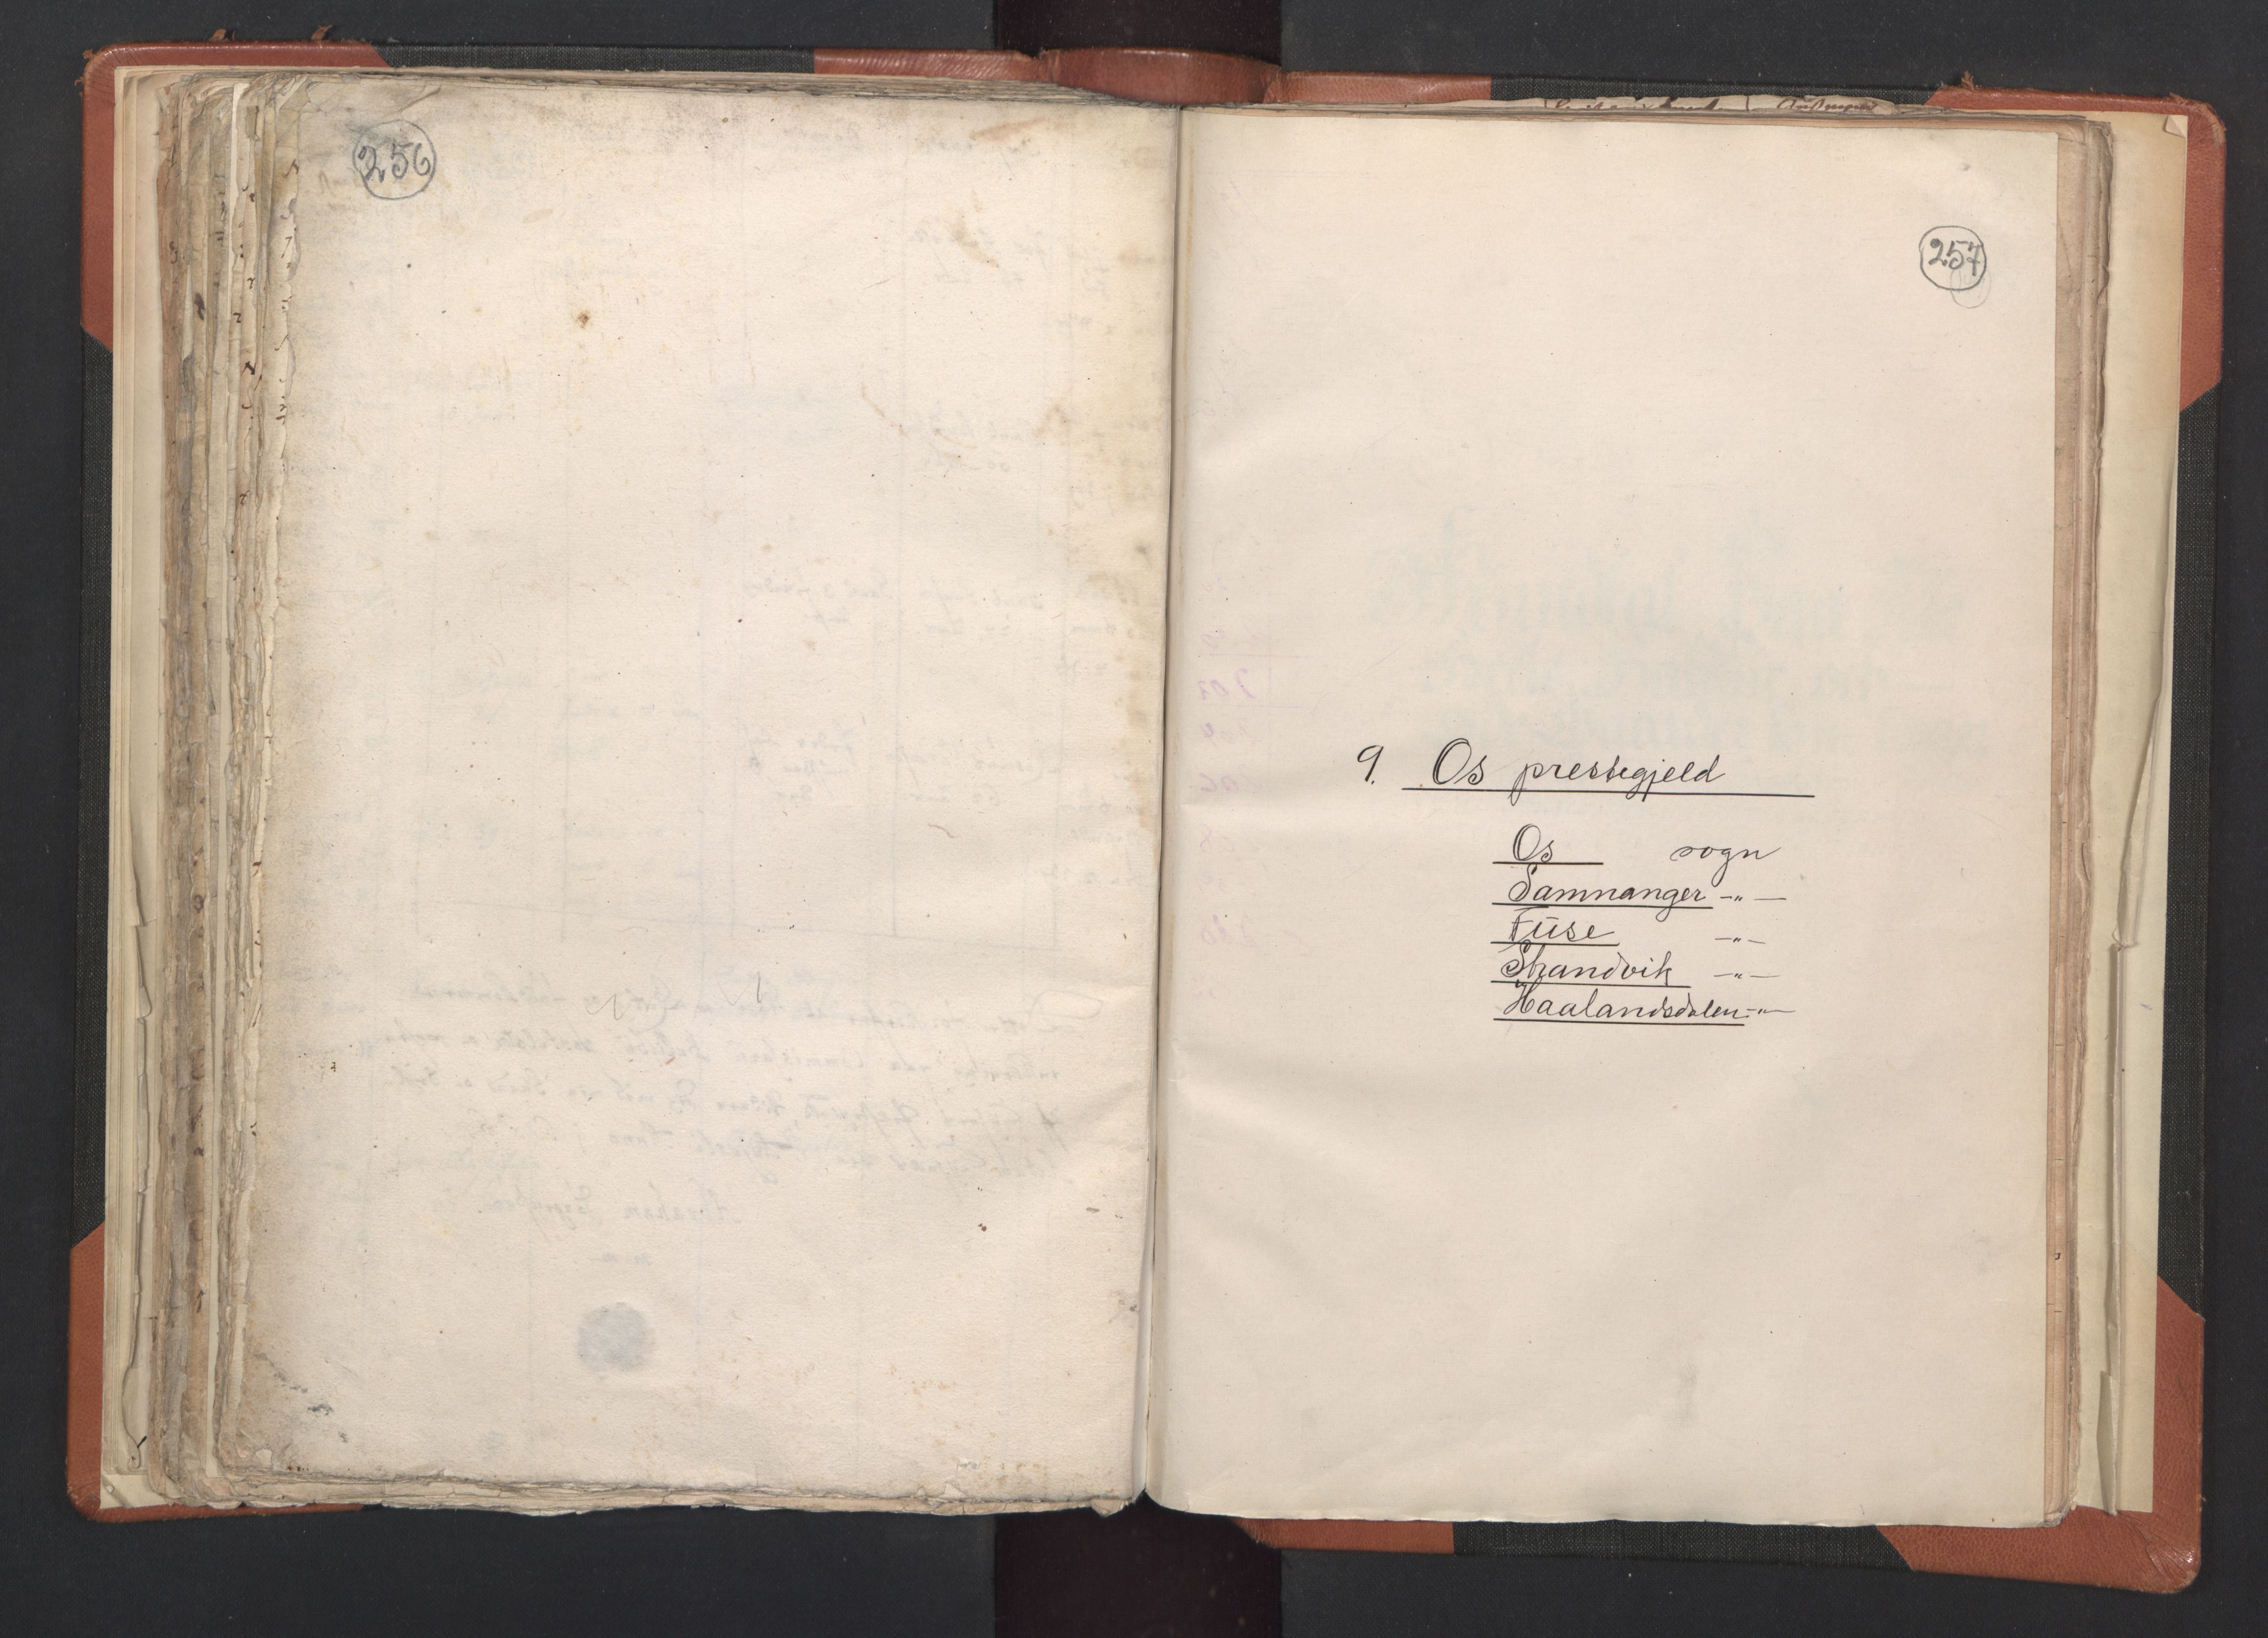 256
257
9. Os prestegjeld
Os sogn
Samnanger -"-
Fuse -"-
Strandvik -"-
Haalandsdalen -"-